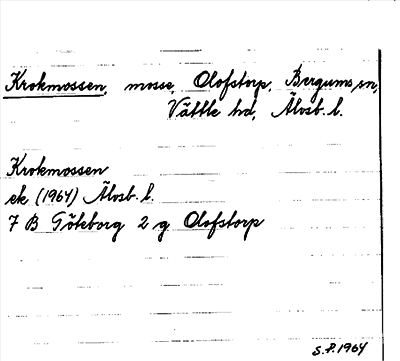 Krokmossen, mosse, Olofstorp, Bergums sn,
Vättle hd, Älvsb. l.
Krokmossen
ek (1964) Älvsb. l.
7 B Göteborg 2 g Olofstorp
S.P. 1964